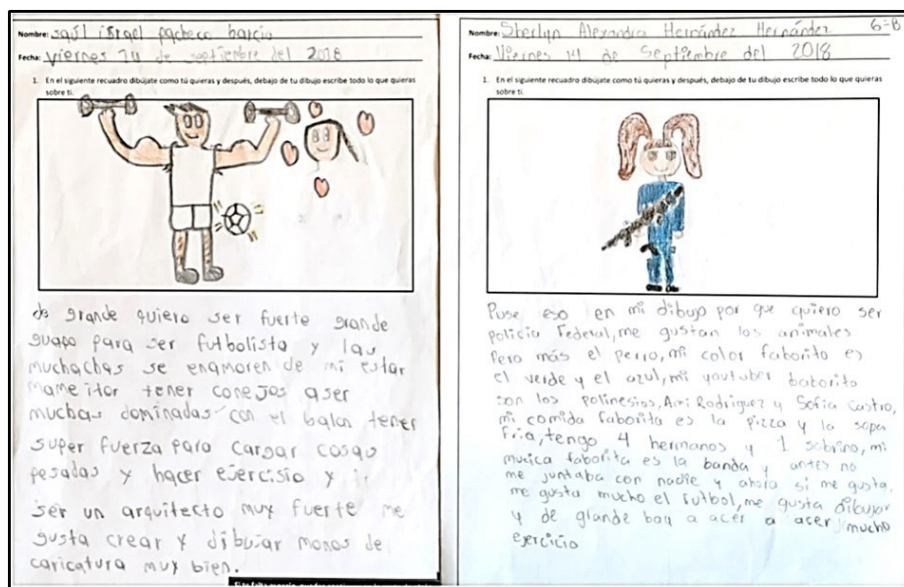 Nombre: saúl israel pacheco barcia
Fecha: viernes 14 de septiembre del 2018
1. En el siguiente recuadro dibújate como tú quieras y después, debajo de tu dibujo escribe todo lo que quieras
sobre ti.
de grande quiero ser fuerte grande
guapo para ser futbolista y las
muchachas se enamoren de mi estar
mameitor tener conejos aser
muchas dominadas con el balon tener
super fuerza para cargar cosas
pesadas y hacer ejercisio y ir
ser un arquitecto muy fuerte me
gusta crear y dibujar monos de
caricatura muy bien.
Nombre: Sherlyn Alexandra Hernández Hernández 6=B
Fecha: Viernes 14 de Septiembre del 2018
1. En el siguiente recuadro dibújate como tú quieras y después, debajo de tu dibujo escribe todo lo que quieras
sobre ti.
Puse eso en mi dibujo por que quiero ser
policia Federal, me gustan los animales
Pero más el perro, mi color faborito es
el verde y el azul, mi youtuber baborito
son los polinesios, Ami Rodriguez y Sofia Castro,
mi comida faborita es la pizza y la sopa
fria, tengo 4 hermanos y 1 sobrino, mi
musica faborita es la banda y antes no
me juntaba con nadie y ahora si me gusta,
me gusta mucho el futbol, me gusta dibujar
y de glande boy a acer a aser mucho
ejercicio